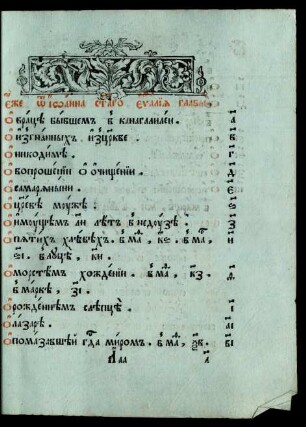 Еже ѿ іѡанна ст҃аго еѵⷢ҇лїа главы
О браце бывшемъ в канагалилеи. а҃
О изгнанныхъ из цр҃кве. в҃
О никодиме. г҃
О вопрошенїи о очищенїи. д҃
О самарѧныни. є҃
О цр҃еве моуже. ѕ҃
О имоущемъ л҃и лѣтъ в недоузе. з҃
О пѧтихъ хлѣбѣхъ. в ма, к҃є. в ма, и҃
є҃і. в луце, к҃и
О морстемъ хожденїи. в ма, к҃з. ѳ҃
в марке, з҃і.
О рожденнемъ слепце. і҃
О лазаре. а҃і
О помазавшей гд҃а миромъ. в ма, в҃і
а҃